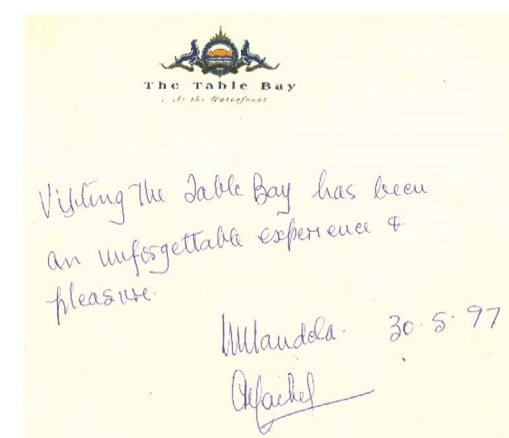 The Table Bay
At the Waterfront
Visiting The Table Bay has been
an unforgettable experience &
pleasure.
NMandela. 30.5.97
GMachel